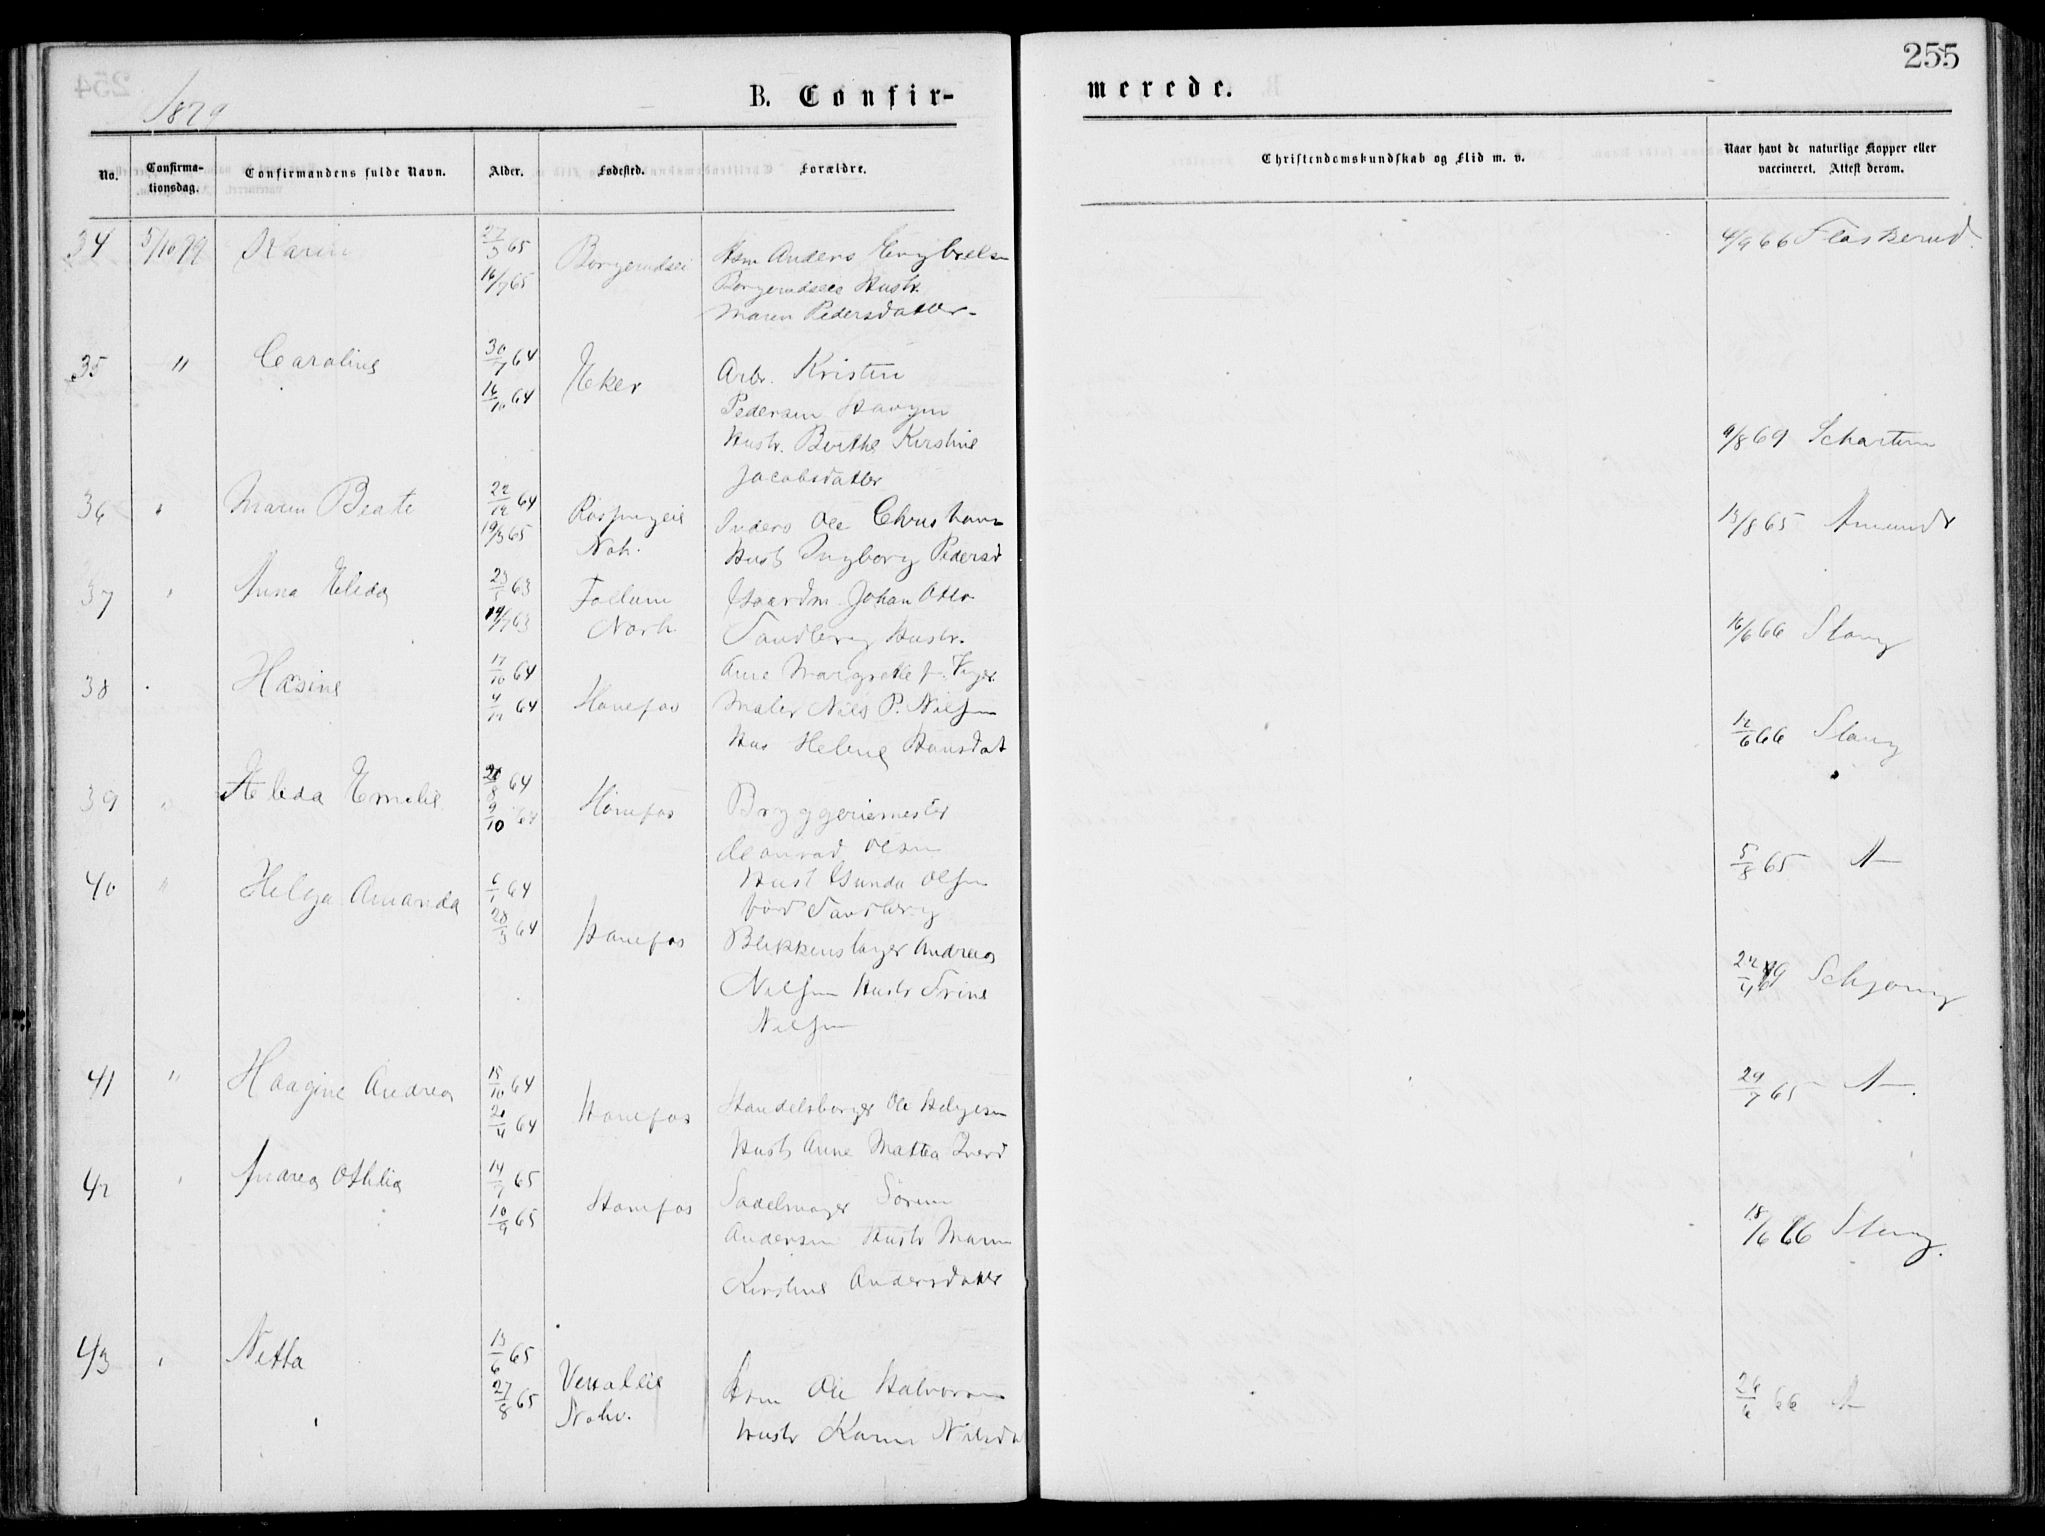 255
1879
B. Confir-
merede.
No.
Confirma-
tionsdag.
Confirmandens fulde Navn.
Alder.
Fødested.
Forældre.
Christendomskundskab og Flid m. v.
Naar havt de naturlige Kopper eller
vaccineret. Attest derom.
34 5/10 79 Karen 27/5 65 16/7 65 Borgerudsei
Hsm Anders Engbretsn
Hustr.
Maren Pedersdatter
4/9 66 Flaskerud.
35 " Caroline 30/7 64 16/10 64 Eker
Arbr. Kristen
Pedersen Haugen
Hustr. Berthe Kirstine
Jacobsdatter
9/8 69
36 " Maren Beate 22/12 64 19/3 65
Noh.
Inders Ole Christians
Hust Ingborg Pedersd
13/8 65 Amundr
37 " Anna Elida 23/5 63 19/7 63 Follum
Norh
Gaardm. Johan Otto
Sandberg Hustr.
Ane Margrethe f.
16/6 66 Stang
38 " Hæsine 17/10 64 4/12 64 Hønefos
Maler Nils P. Nilsen
Hus Helene Hansdat
12/6 66 Stang
39 " Elida Emelie 28/8 64 9/10 64 Hønefos
Bryggeriemester
Conrad Olsen
Hust Gunda Olsen
fød Sandberg
5/8 65 A
40 " Helga Amanda 6/1 64 28/3 64 Hønefos
Blikkenslager Andreas
Nilsen Hustr Trine
Nilsen
Schjong
41 " Haagine Andrea 15/10 64 Hønefos
Handelsborger Ole Helgesen
Hustr Anne Mathea
29/7 65 A
42 " Andrea Othilia 14/7 65 10/9 65 Hønefos
Sadelmager Søren
Andersen Hustr Maren
Kirstine Andersdatter
18/6 66 Stang.
43 " Netta 13/6 65 27/8 65
Nohv.
Hsm Ole Halvorsen
Hustr Karen Nilsdt
26/6 66 A